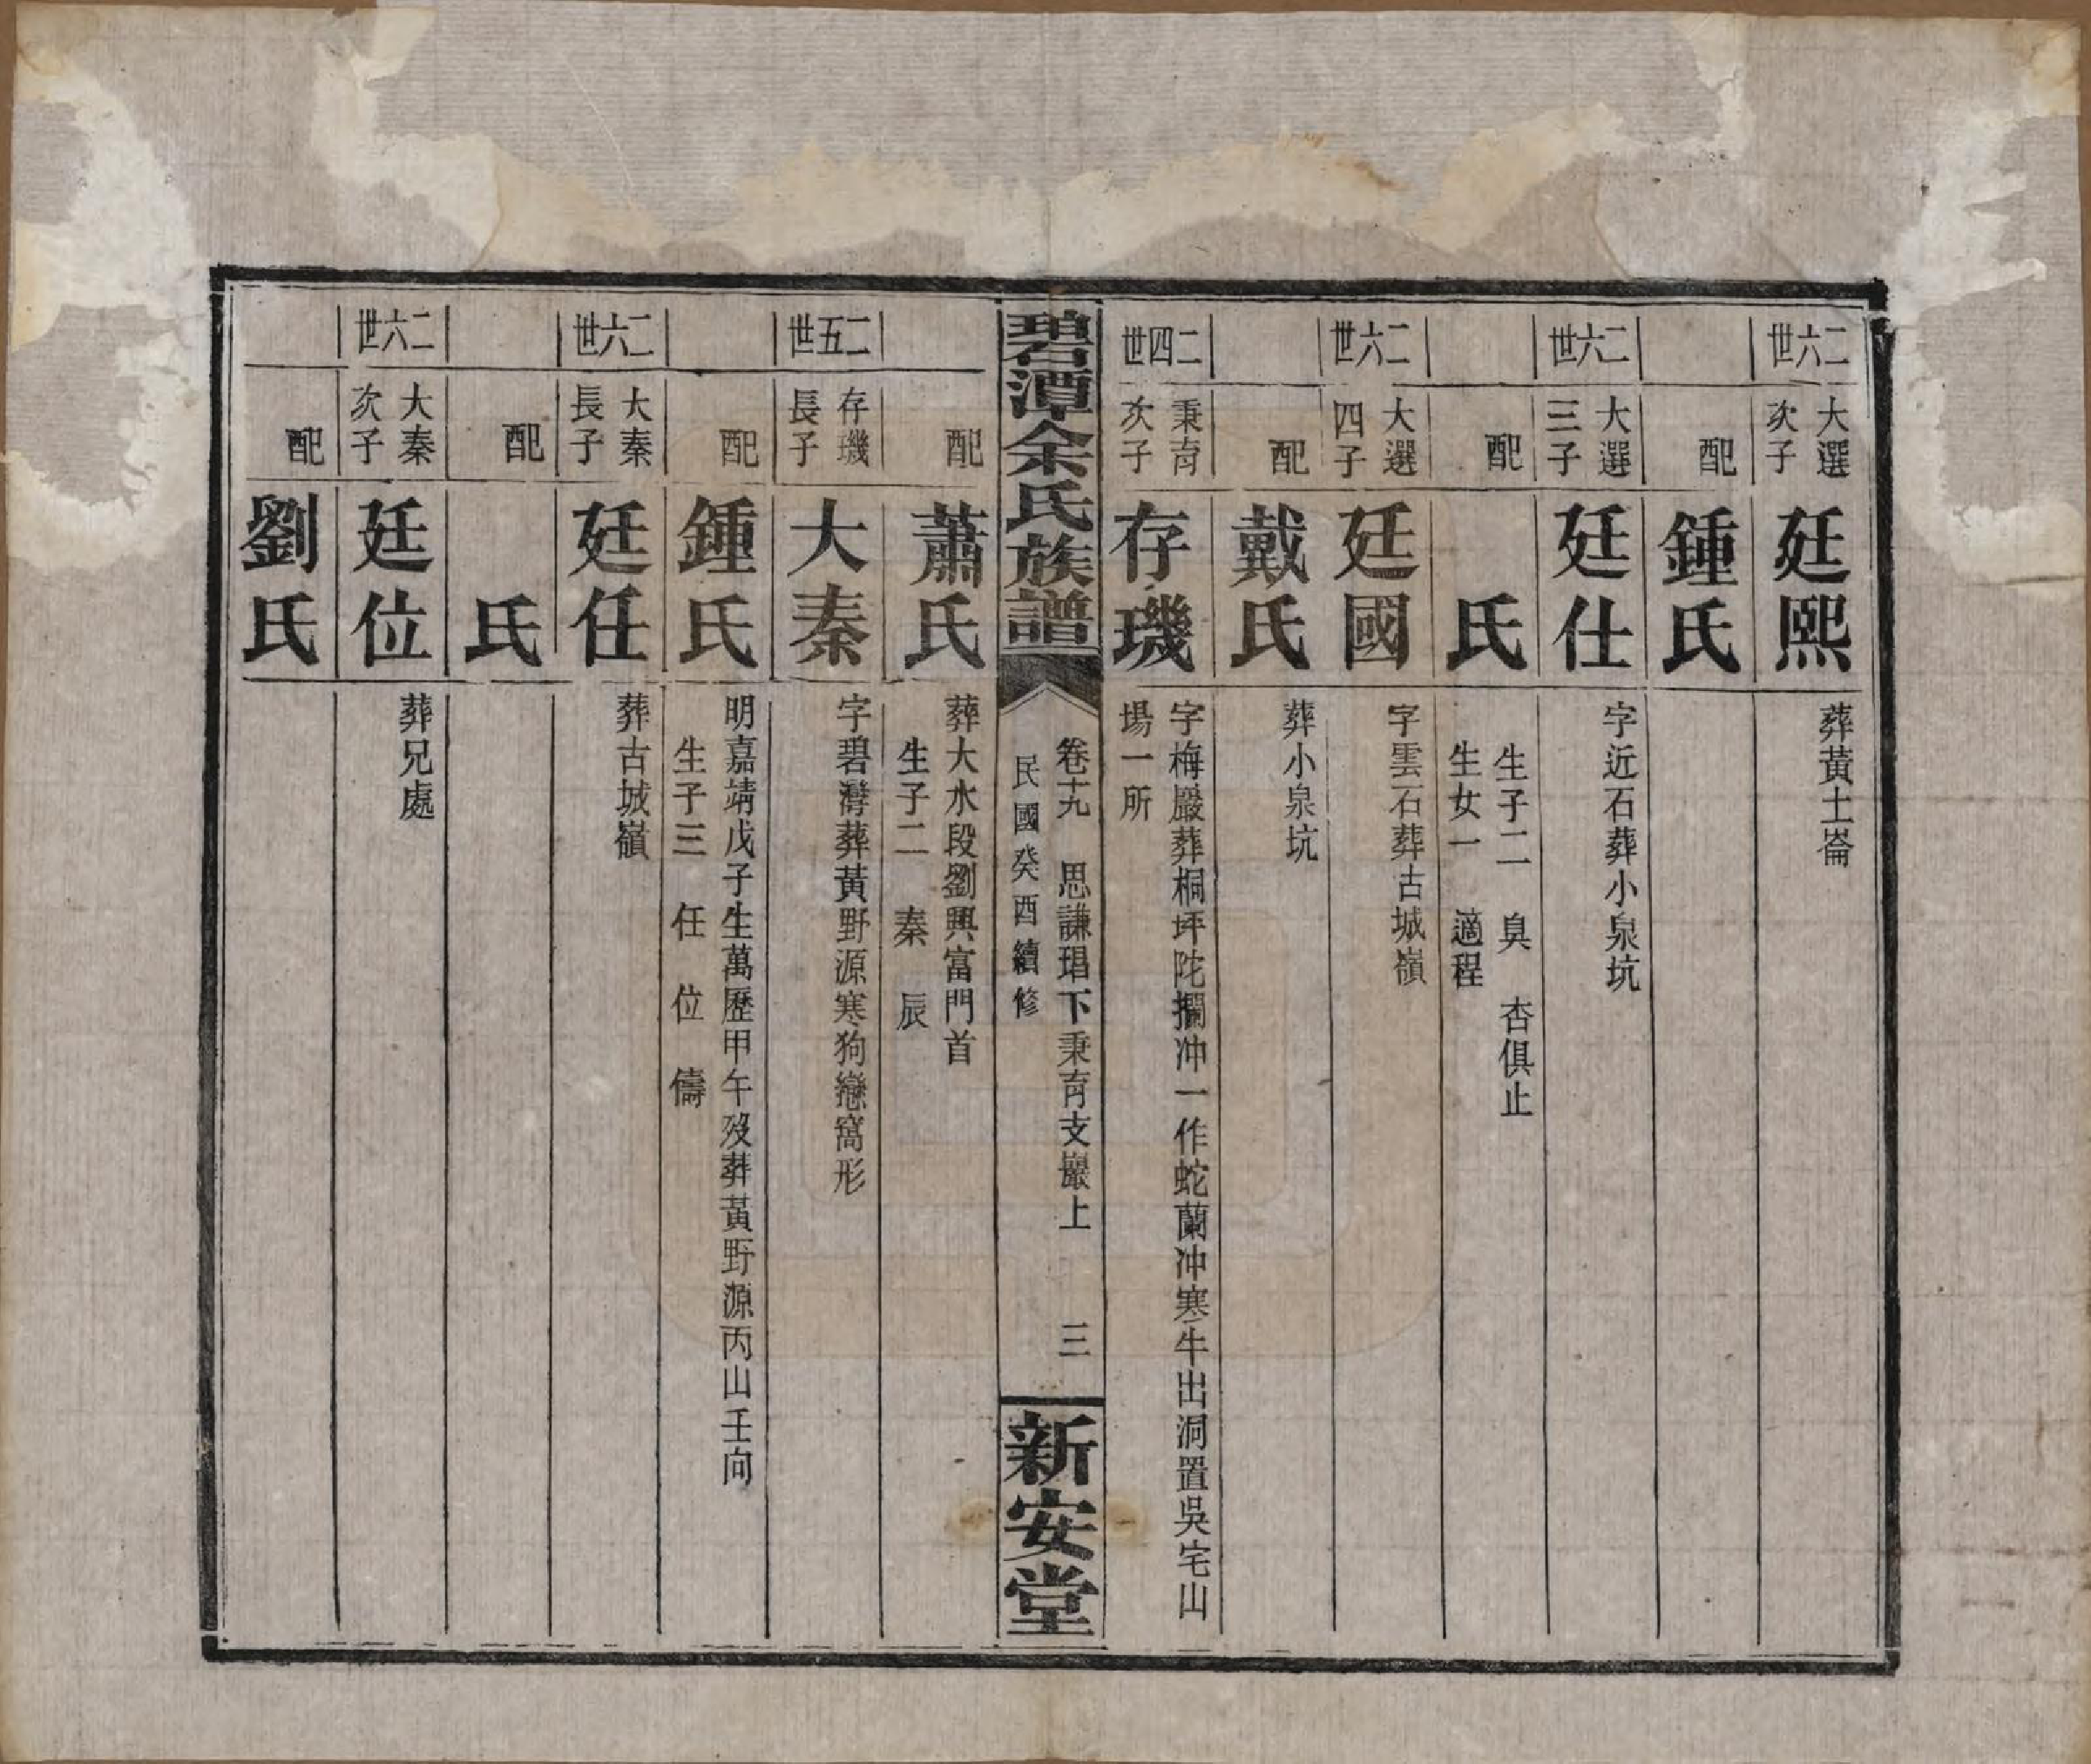 二六世
大選
次子
廷熙
葬黃土崙
配
鍾氏
二六世
大選
三子
廷仕
字近石葬小泉坑
配
氏
生子二 臭 杏俱止
生女一 適程
二六世
大選
四子
廷國
字雲石葬古城嶺
配
戴氏
葬小泉坑
二四世
秉育
次子
存璣
字梅嚴葬桐坪陀攔冲一作蛇蘭冲寒牛出洞置吳宅山
場一所
碧潭余氏族譜
卷十九 思謙琩下秉育支巖上 三
民國癸酉續修
新安堂
配
蕭氏
葬大水段劉興富門首
生子二 秦 辰
二五世
存璣
長子
大秦
字碧灣葬黃野源寒狗戀窩形
配
鍾氏
明嘉靖戊子生萬歷甲午歿葬黃野源丙山壬向
生子三 任 位 儔
二六世
大秦
長子
廷任
葬古城嶺
配
氏
二六世
大秦
次子
廷位
葬兄處
配
劉氏